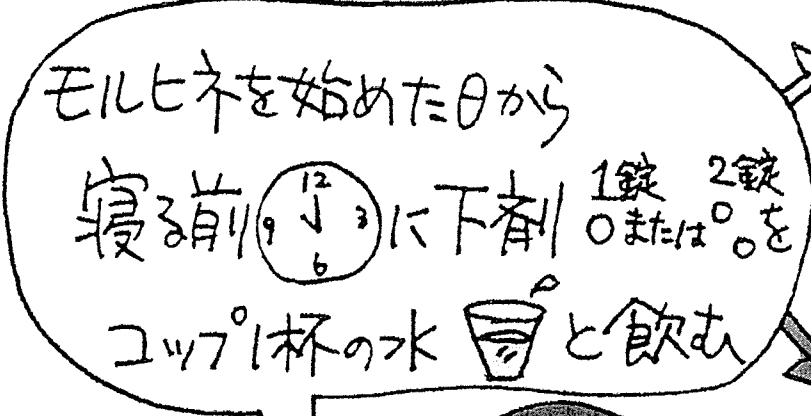 モルヒネを始めた日から
寝る前 12 3 6 9 に下剤 1錠または2錠を
コップ1杯の水と飲む